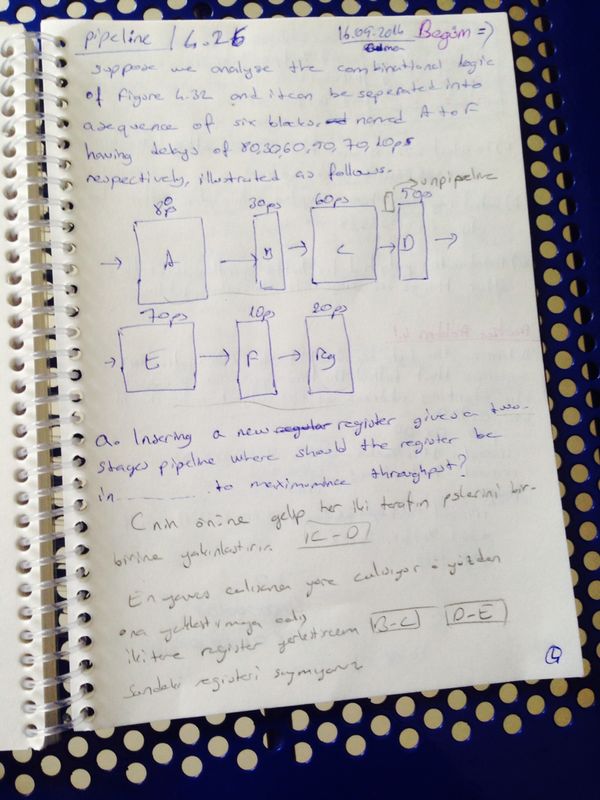 pipeline / 4.25 16.09.2014 Begüm =)
suppose we analyze the combinational logic
of figure 4.32 and it can be seperated into
a sequence of six blocks, named A to F
having delays of 80,30,60,50,70,10ps
respectively, illustrated as follows.
unpipeline
80ps 30ps 60ps 50ps
A B C D
70ps 10ps 20ps
E F Rg
a. Insering a new register gives a two-
stages pipeline where should the register be
in.......... to maximumince throughput?
C nin önüne gelip her iki tarafın pslerini bir-
birine yakınlaştırır. C-D
En yavaş çalışana göre çalışıyor o yüzden
ona yaklaştırmaya
iki tane register yerleştirsem B-C D-E
Sondaki registeri saymıyoruz
4